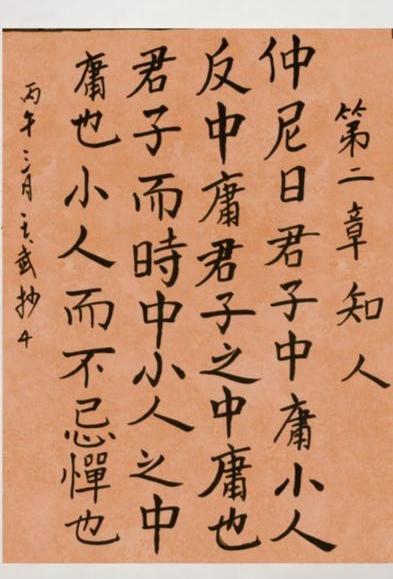 第二章知人
仲尼曰君子中庸小人
反中庸君子之中庸也
君子而時中小人之中
庸也小人而不忌憚也
丙午三月武抄